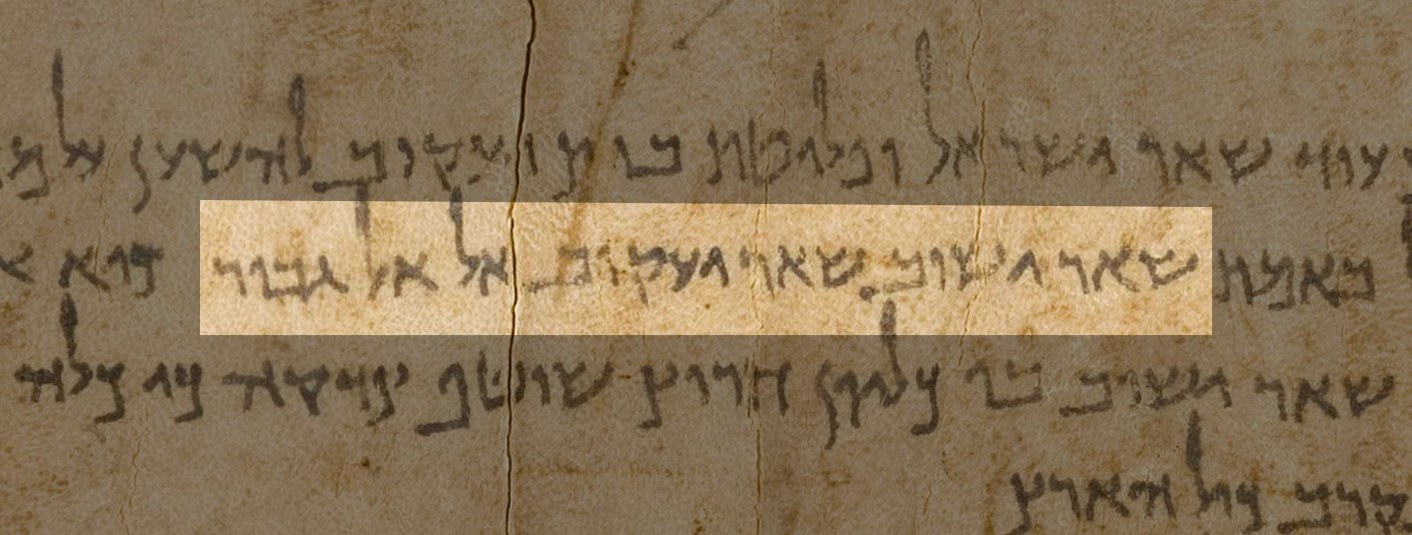 עוד שאר ישראל ופליטת בית יעקוב להשען על
באמת שאר ישוב שאר יעקוב אל אל גבור כיא
שאר ישוב בו כליון חרוץ שוטף וצדקה כי כלה
קרב כול הארץ